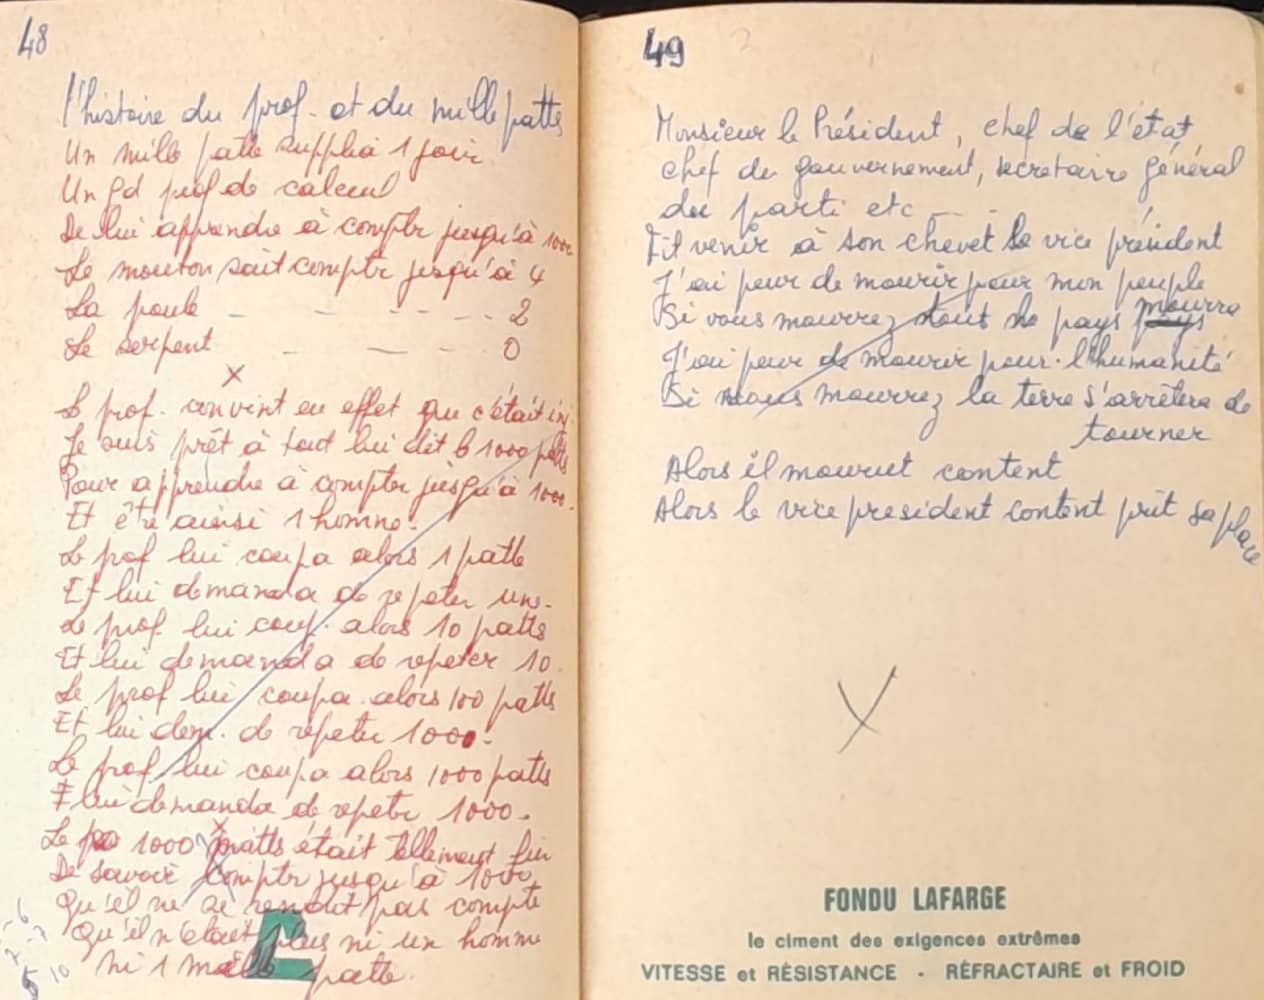 48
l'histoire du prof. et du mille pattes
Un mille patte supplia 1 jour
Un gd prof de calcul
De lui apprendre à compter jusqu'à 1000
Le mouton sait compter jusqu'à 4
La poule - - - - - - 2
Le serpent - - - - 0
x
Le prof. convint en effet que c'était inj.
Je suis prêt à tout lui dit le 1000 pattes
Pour apprendre à compter jusqu'à 1000.
Et être ainsi 1 homme.
Le prof lui coupa alors 1 patte
Et lui demanda de repeter une.
Le prof. lui coup. alors 10 pattes
Et lui demanda de repeter 10.
Le prof lui coupa alors 100 pattes
Et lui dem. de repeter 1000.
Le prof lui coupa alors 1000 pattes
Et lui demanda de repeter 1000.
x
Le 1000 pattes était tellement fier
De savoir compter jusqu'à 1000
Qu'il ne se rendit pas compte
Qu'il n'était plus ni un homme
ni 1 mille patte.
10
49
Monsieur le Président, chef de l'état,
chef du gouvernement, secretaire général
du parti etc - - -
Fit venir à son chevet le vice président
J'ai peur de mourir pour mon peuple
Si vous mourrez tout le pays pays mourra
J'ai peur de mourir pour l'humanité
Si vous mourrez la terre s'arrêtera de
tourner
Alors il mourut content
Alors le vice president content prit sa place
X
FONDU LAFARGE
le ciment des exigences extrêmes
VITESSE et RÉSISTANCE - RÉFRACTAIRE et FROID